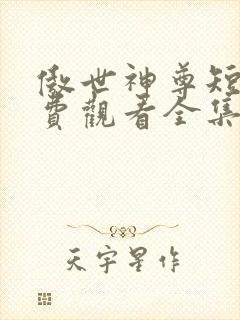 傲世神尊短
費觀看全集
天宇星作